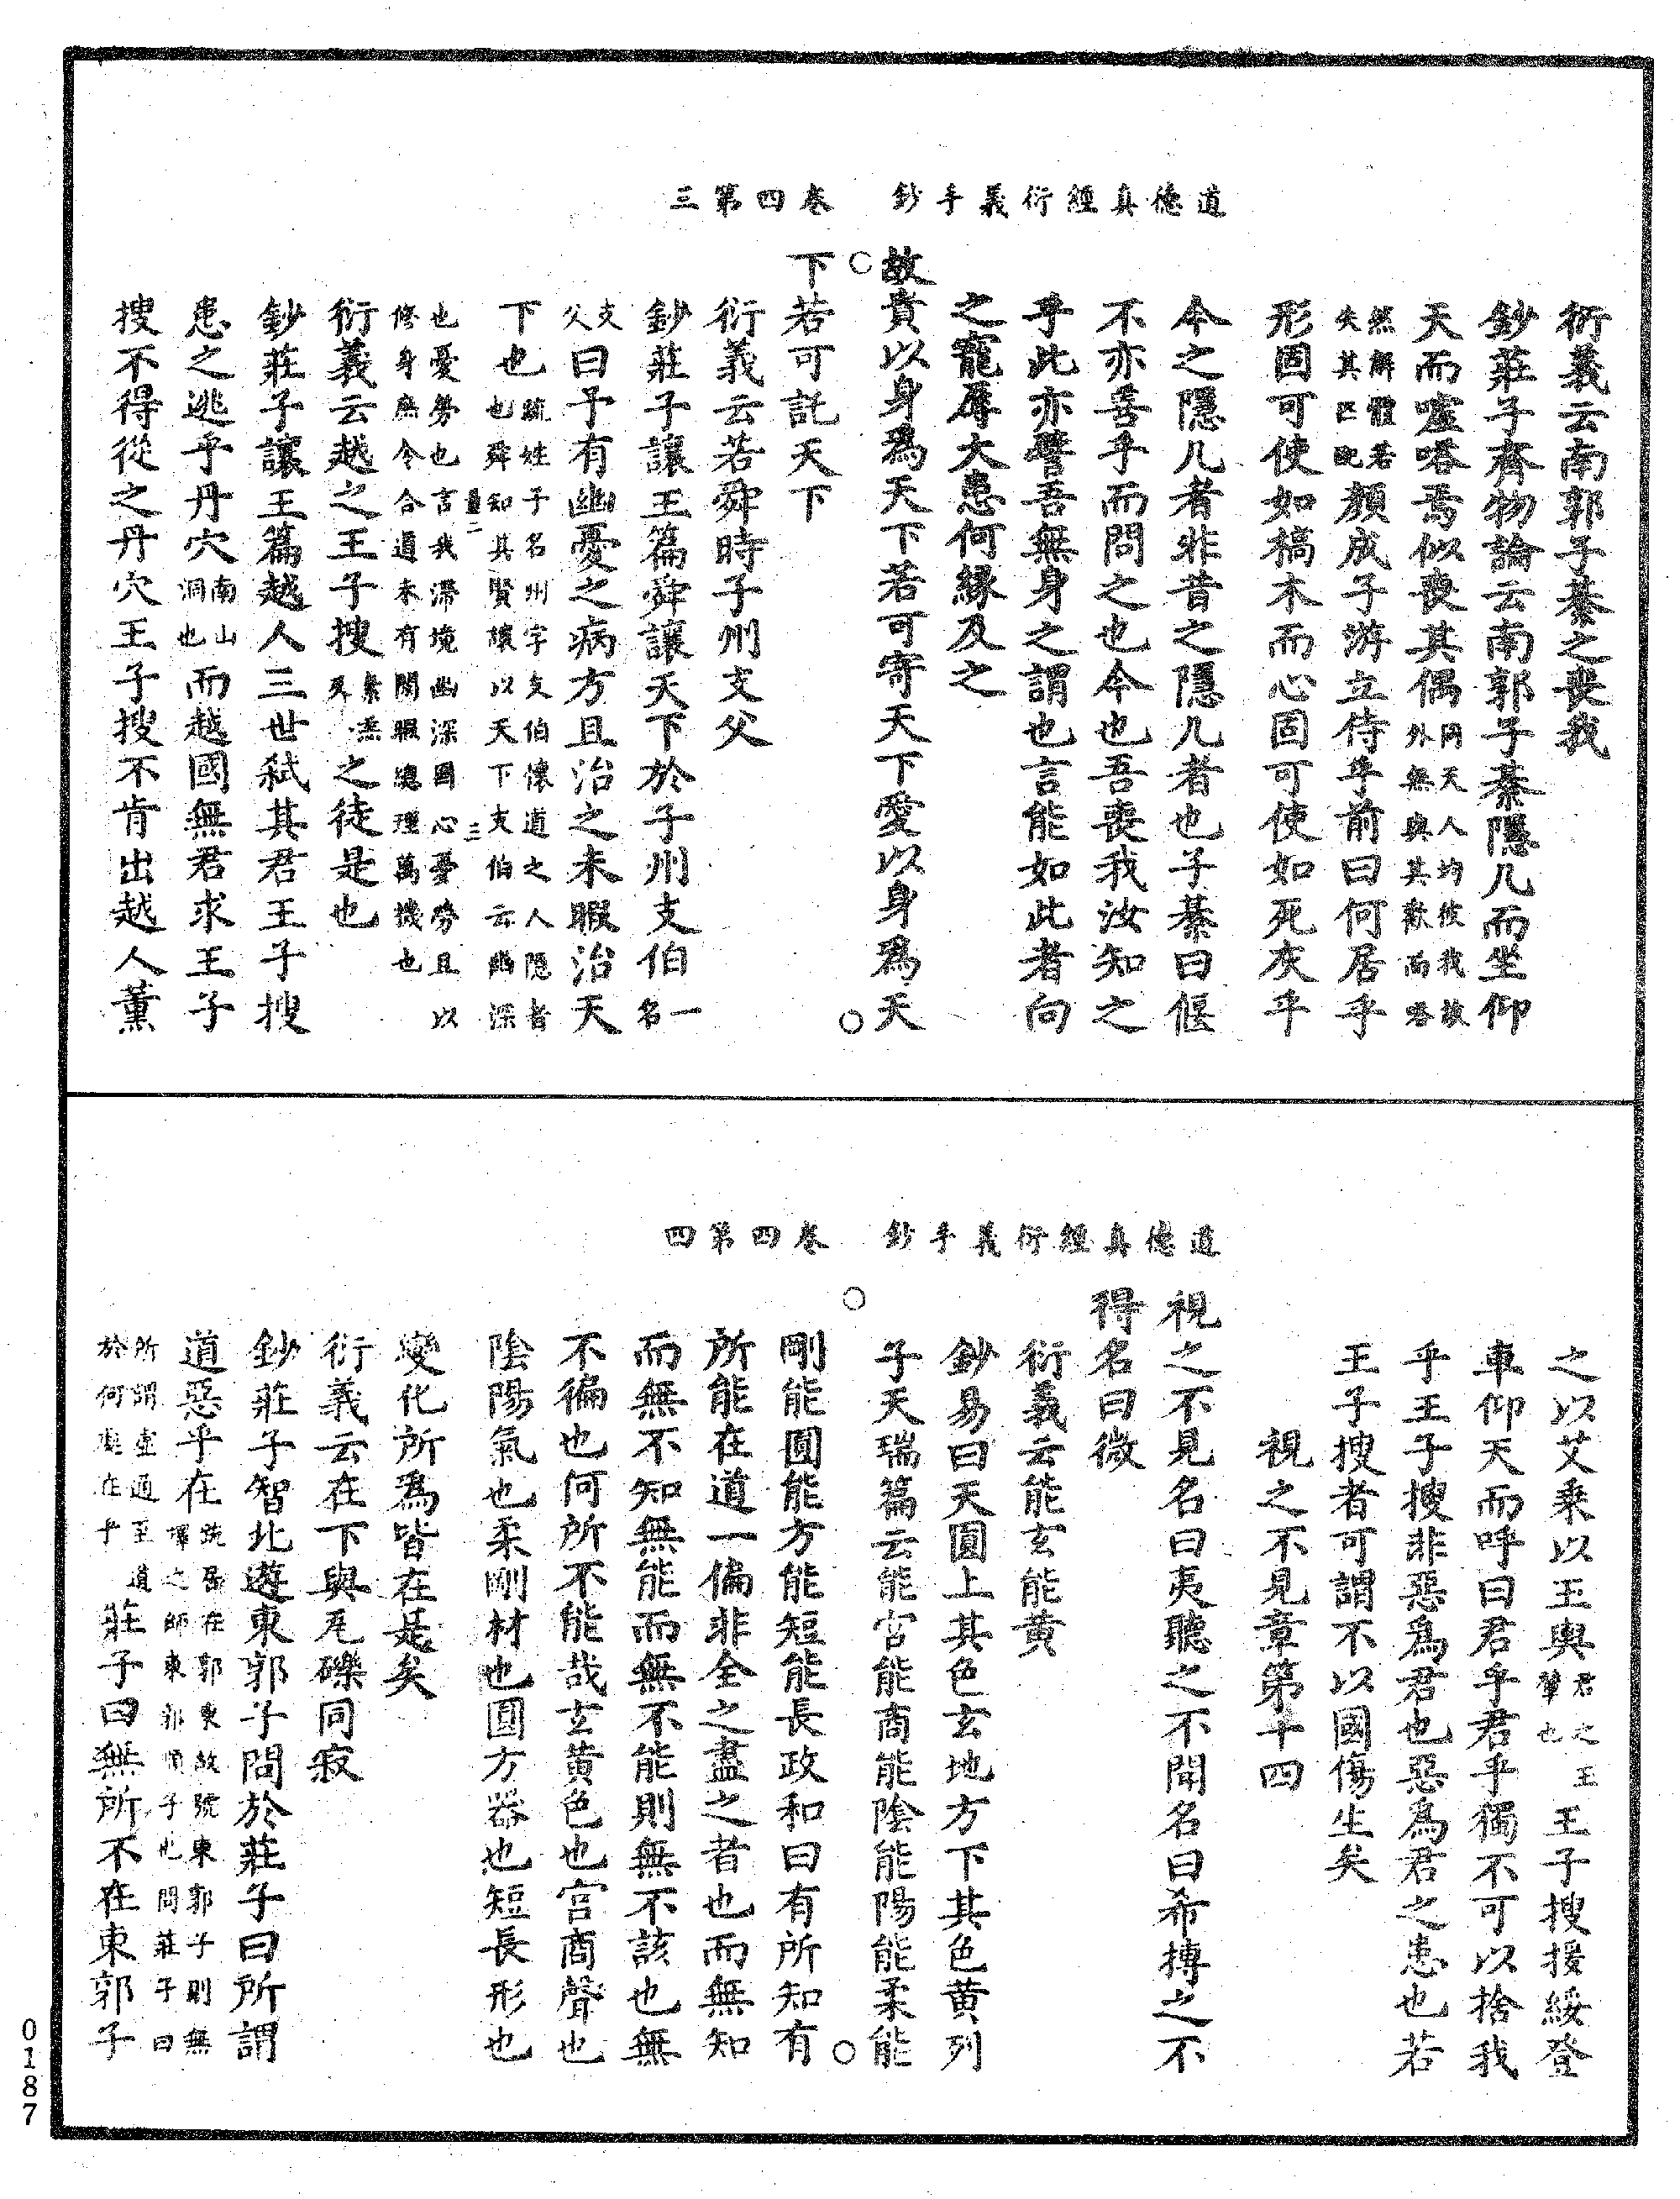 道德真經衍義手鈔　卷四第三
衍義云南郭子綦之喪我
鈔莊子齊物論云南郭子綦隱几而坐仰
天而噓嗒焉似喪其偶同天人均彼我故外無與其歡而嗒
然解體若失其匹配顏成子游立侍乎前曰何居乎
形固可使如槁木而心固可使如死灰乎
今之隱几者非昔之隱几者也子綦曰偃
不亦善乎而問之也今也吾喪我汝知之
乎此亦譬吾無身之謂也言能如此者向
之寵辱大患何緣及之
故貴以身為天下若可寄天下愛以身為天
下若可託天下
衍義云若舜時子州支父
鈔莊子讓王篇舜讓天下於子州支伯一名
支父曰予有幽憂之病方且治之未暇治天
下也疏姓子名州字支伯懷道之人隱者也舜知其賢讓以天下支伯云幽深
也憂勞也言我滯境幽深固心憂勞且以修身庶令合道未有閑暇總理萬機也
衍義云越之王子搜之徒是也
鈔莊子讓王篇越人三世弒其君王子搜
患之逃乎丹穴南山洞也而越國無君求王子
搜不得從之丹穴王子搜不肯出越人薰
道德真經衍義手鈔　卷四第四
之以艾乘以王輿君之王輦也王子搜援綏登
車仰天而呼曰君乎君乎獨不可以捨我
乎王子搜非惡為君也惡為君之患也若
王子搜者可謂不以國傷生矣
視之不見章第十四
視之不見名曰夷聽之不聞名曰希搏之不
得名曰微
衍義云能玄能黄
鈔易曰天圓上其色玄地方下其色黄列
子天瑞篇云能宫能商能陰能陽能柔能
剛能圓能方能短能長政和曰有所知有
所能在道一偏非全之盡之者也而無知
而無不知無能而無不能則無不該也無
不徧也何所不能哉玄黄色也宫商聲也
陰陽氣也柔剛材也圓方器也短長形也
變化所為皆在是矣
衍義云在下與瓦礫同寂
鈔莊子智北遊東郭子問於莊子曰所謂
道惡乎在疏居在郭東故號東郭子則無擇之師東郭順子也問莊子曰
所謂虛通至道於何處在乎莊子曰無所不在東郭子
0187